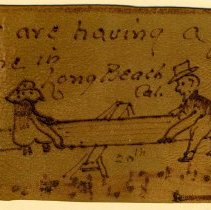 are having a
in
Long Beach
Cal.